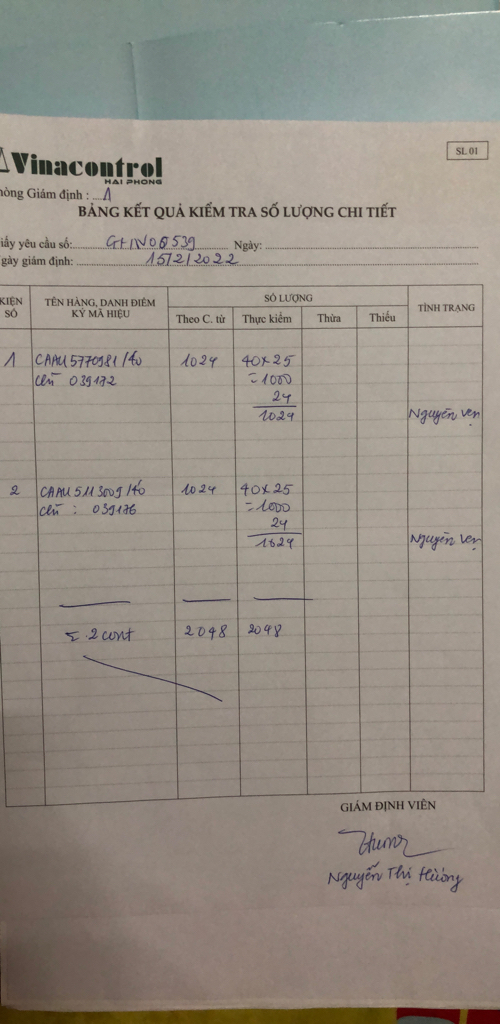 Vinacontrol
HAI PHONG
SL 01
hòng Giám định : ....1
BẢNG KẾT QUẢ KIỂM TRA SỐ LƯỢNG CHI TIẾT
iấy yêu cầu số: Ngày:
gày giám định: 15/2/2022
KIỆN SỐ TÊN HÀNG, DANH ĐIỂM KÝ MÃ HIỆU SỐ LƯỢNG TÌNH TRẠNG
Theo C. từ Thực kiểm Thừa Thiếu
1 CAAU 5770981/40 1024 40x25
chì 039172 =1000
24
1024
Nguyên vẹn
2 CAAU 5113009/40 1024 40x25
chì : 039176 =1000
24
1024
Nguyên vẹn
Σ 2 cont 2048 2048
GIÁM ĐỊNH VIÊN
Nguyễn Thị Hương